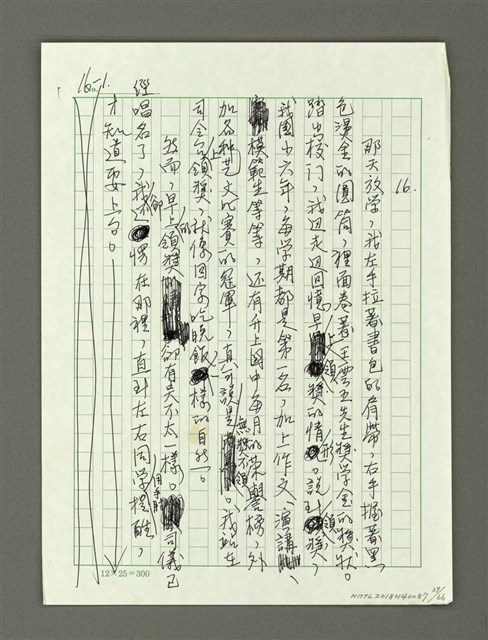 16-1.
16.
那天放学，我左手拉著書包的肩帶，右手握著黑
色燙金的圓筒，裡面卷著王雲五先生奬学金的奬狀。
踏出校门，我边走边回憶早上領奬的情形，説到領奬，
我國小六年，每学期都是第一名，加上作文、演講、
模範生等等，还有升上國中每月的榮譽榜，外
加各种艺文比賽的冠軍，真可說是無奬不領。我站在
司令台上領奬，就像回家吃晚飯一樣的自然。
然而，早上的領奬卻有些不太一樣。司儀已
經唱名了，我卻还愣在那裡，直到左右同学用手肘提醒，
才知道要上台。
12×25=300
NMTL20180140087
66